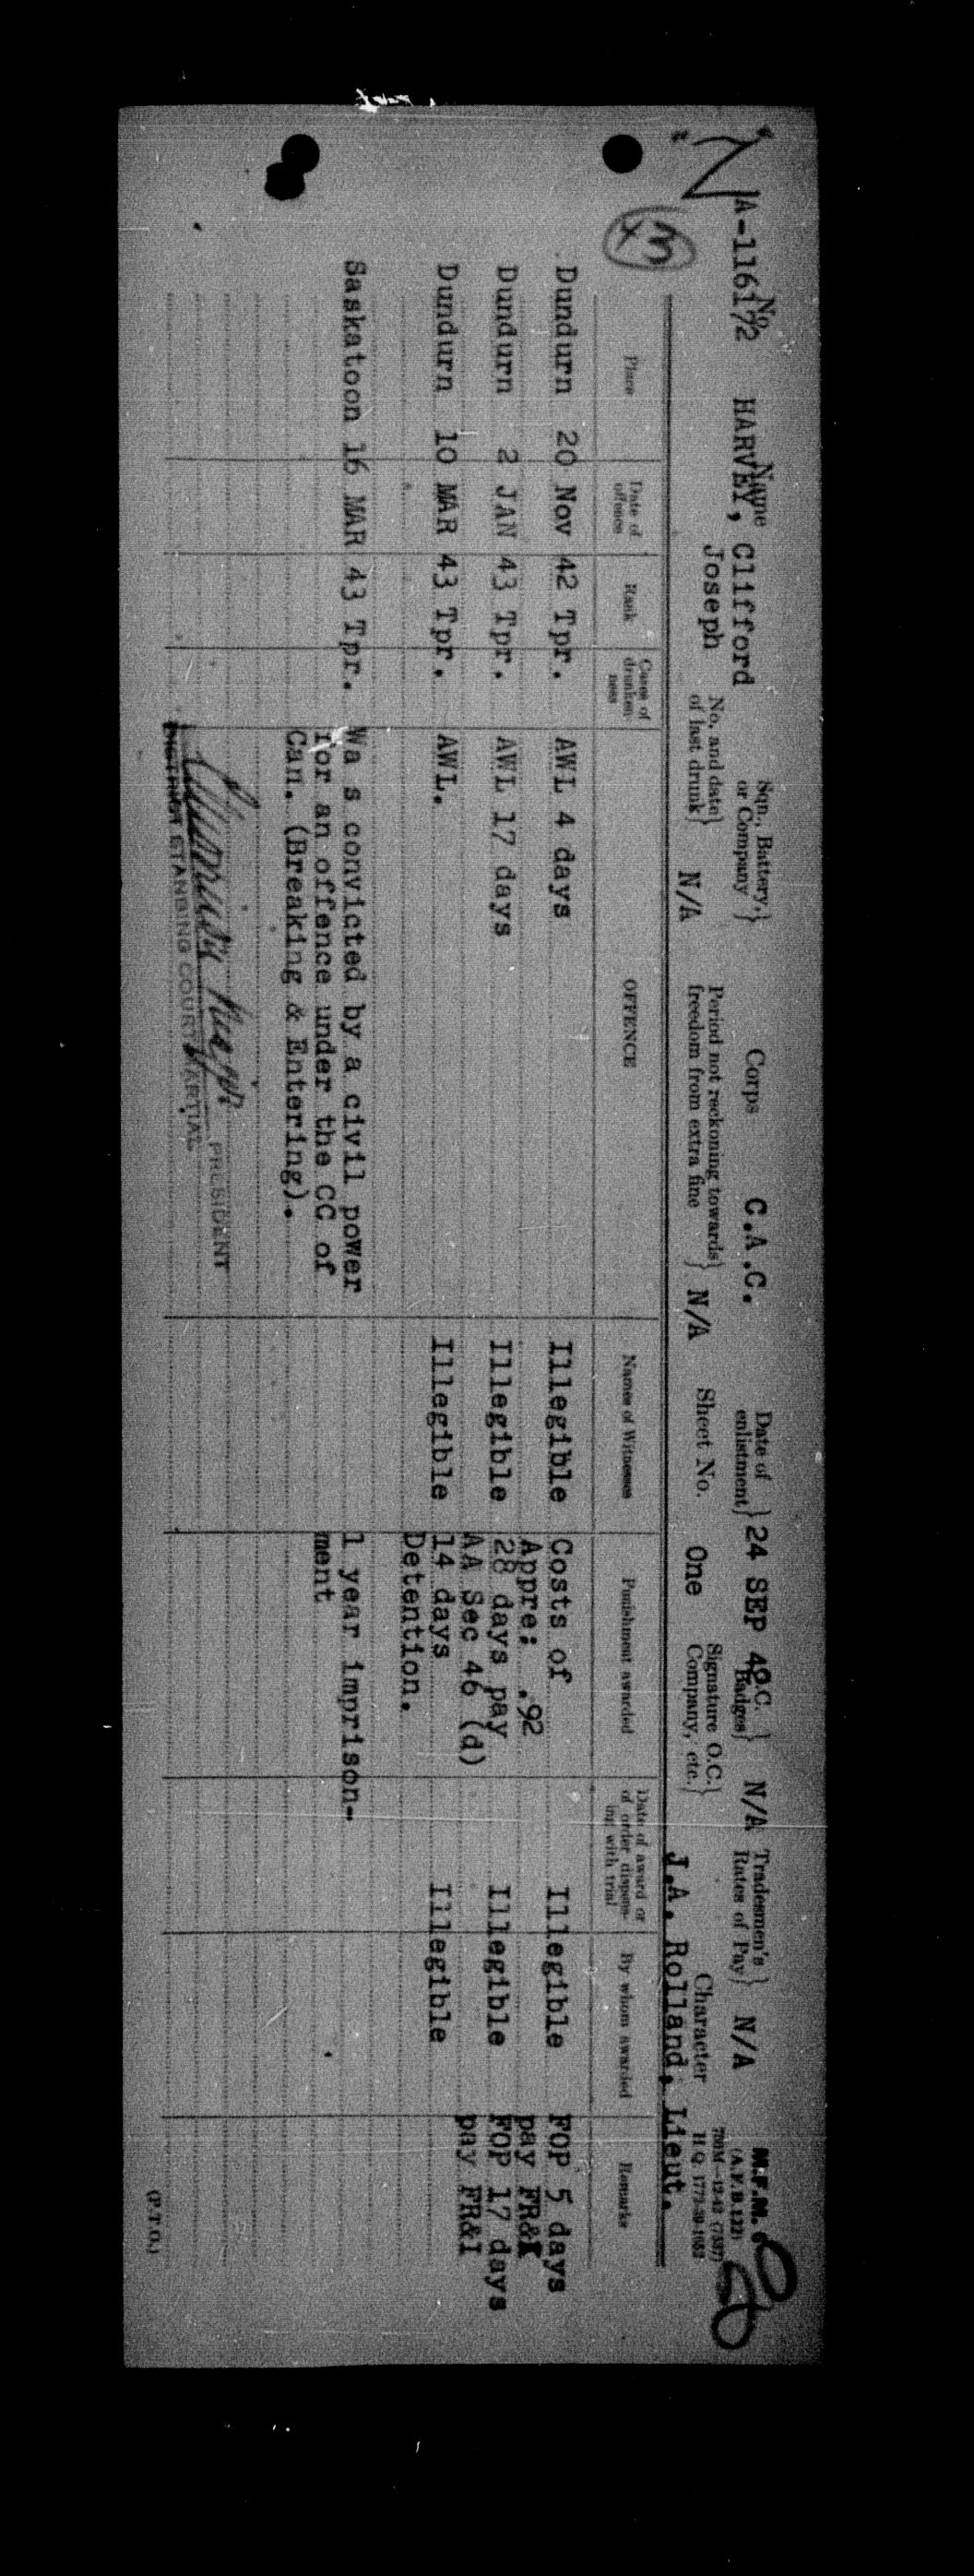 No. Name Sqn., Battery, or Company Corps C.A.C. Date of enlistment 24 SEP 42 G.C. Badges N/A Tradesmen's Rates of Pay N/A M.F.M. 6
A-116172 HARVEY, Clifford (A.F.B.122)
Joseph No. and date of last drunk N/A Period not reckoning towards freedom from extra fine N/A Sheet No. One Signature O.C. Company, etc. Character
J.A. Rolland, Lieut.
43
Place Date of offence Rank Cases of drunkenness OFFENCE Names of Witnesses Punishment awarded Date of award or of order dispensing with trial By whom awarded Remarks
Dundurn 20 Nov 42 Tpr. AWL 4 days Illegible Costs of Illegible FOP 5 days
Appre: .92 pay FR&I
Dundurn 2 JAN 43 Tpr. AWL 17 days Illegible 28 days pay Illegible FOP 17 days
AA Sec 46 (d) pay FR&I
Dundurn 10 MAR 43 Tpr. AWL. Illegible 14 days Illegible
Detention.
Saskatoon 16 MAR 43 Tpr. Wa s convicted by a civil power 1 year imprison-
for an offence under the CC of ment
Can. (Breaking & Entering).
PRESIDENT
DISTRICT STANDING COURT MARTIAL
(P.T.O.)